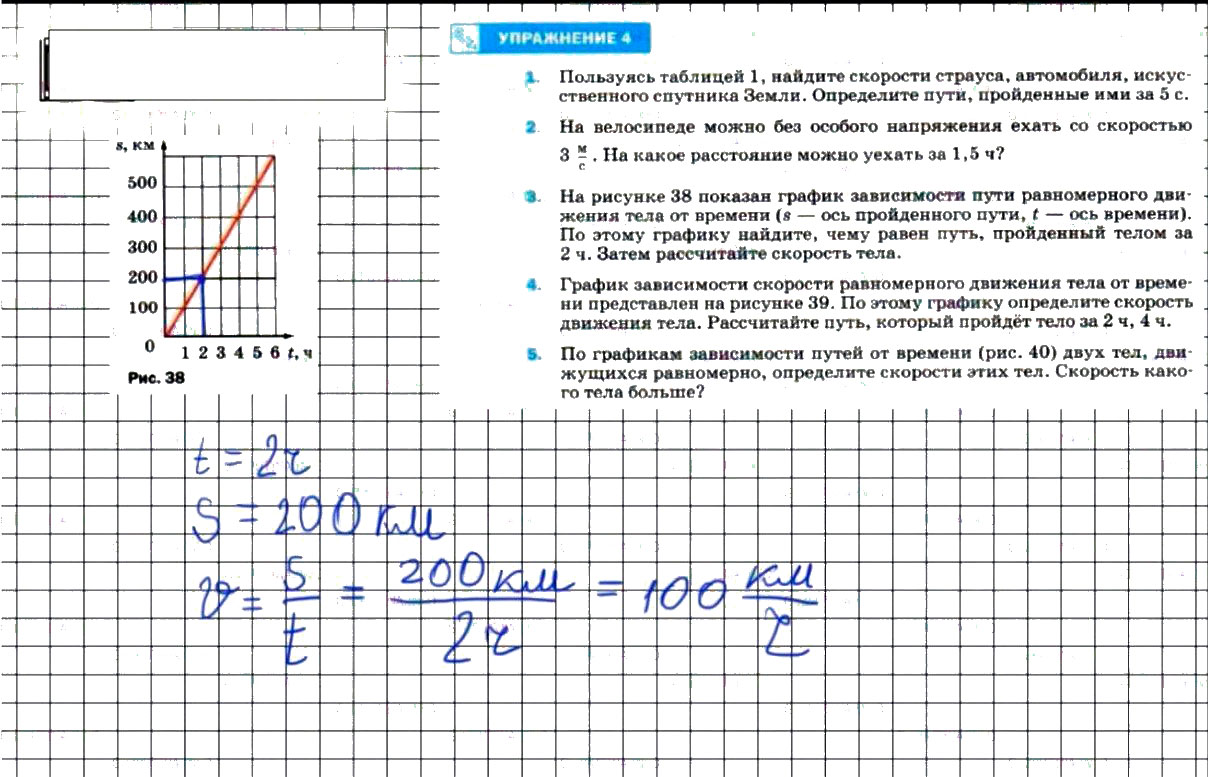 УПРАЖНЕНИЕ 4
1. Пользуясь таблицей 1, найдите скорости страуса, автомобиля, искус-
ственного спутника Земли. Определите пути, пройденные ими за 5 с.
2. На велосипеде можно без особого напряжения ехать со скоростью
3 м/с. На какое расстояние можно уехать за 1,5 ч?
3. На рисунке 38 показан график зависимости пути равномерного дви-
жения тела от времени (s — ось пройденного пути, t — ось времени).
По этому графику найдите, чему равен путь, пройденный телом за
2 ч. Затем рассчитайте скорость тела.
4. График зависимости скорости равномерного движения тела от време-
ни представлен на рисунке 39. По этому графику определите скорость
движения тела. Рассчитайте путь, который пройдёт тело за 2 ч, 4 ч.
5. По графикам зависимости путей от времени (рис. 40) двух тел, дви-
жущихся равномерно, определите скорости этих тел. Скорость како-
го тела больше?
s, км
500
400
300
200
100
0
1 2 3 4 5 6 t, ч
Рис. 38
t = 2ч
S = 200 км
υ = S/t = 200 км/2ч = 100 км/ч